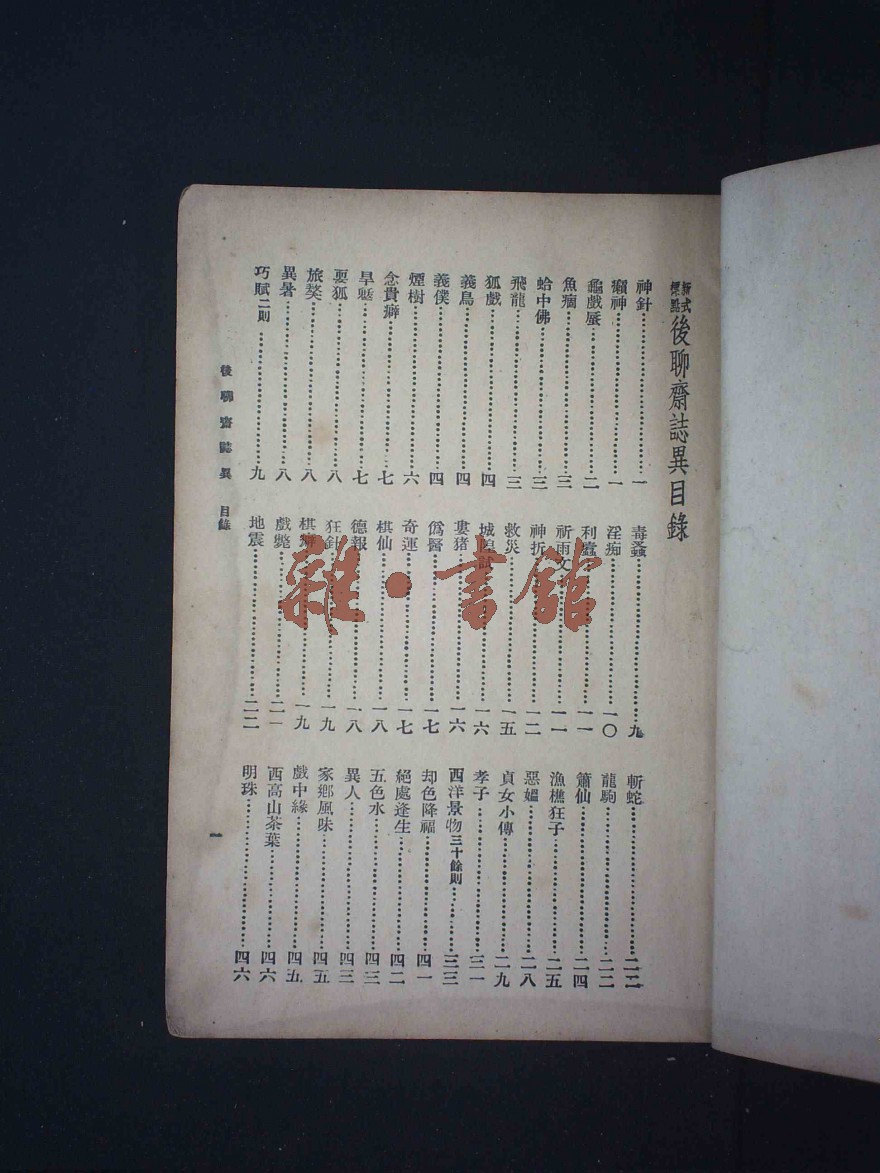 新式標點 後聊齋誌異目錄
神針……一
癩神……一
龜戲蜃……二
魚癇……三
蛤中佛……三
飛龍……三
狐戲……四
義鳥……四
義僕……四
煙樹……六
念貴癖……七
旱魃……七
耍狐……八
旅獒……八
異暑……八
巧賦二則……九
毒蚤……九
淫痴……一〇
利蠹……一一
祈雨文……一一
神折……一二
救災……一五
城隍試……一六
婁猪……一六
僞醫……一七
奇運……一七
棋仙……一八
德報……一八
狂釘……一九
棋癖……一九
戲斃……二一
地震……二二
斬蛇……二二
龍駒……二二
簫仙……二四
漁樵狂子……二五
惡媼……二八
貞女小傳……二九
孝子……三一
西洋景物三十餘則……三三
却色降福……四一
絕處逢生……四二
五色水……四三
異人……四三
家鄉風味……四五
戲中緣……四五
西高山茶葉……四六
明珠……四六
後聊齋誌異 目錄
一
雜·書館